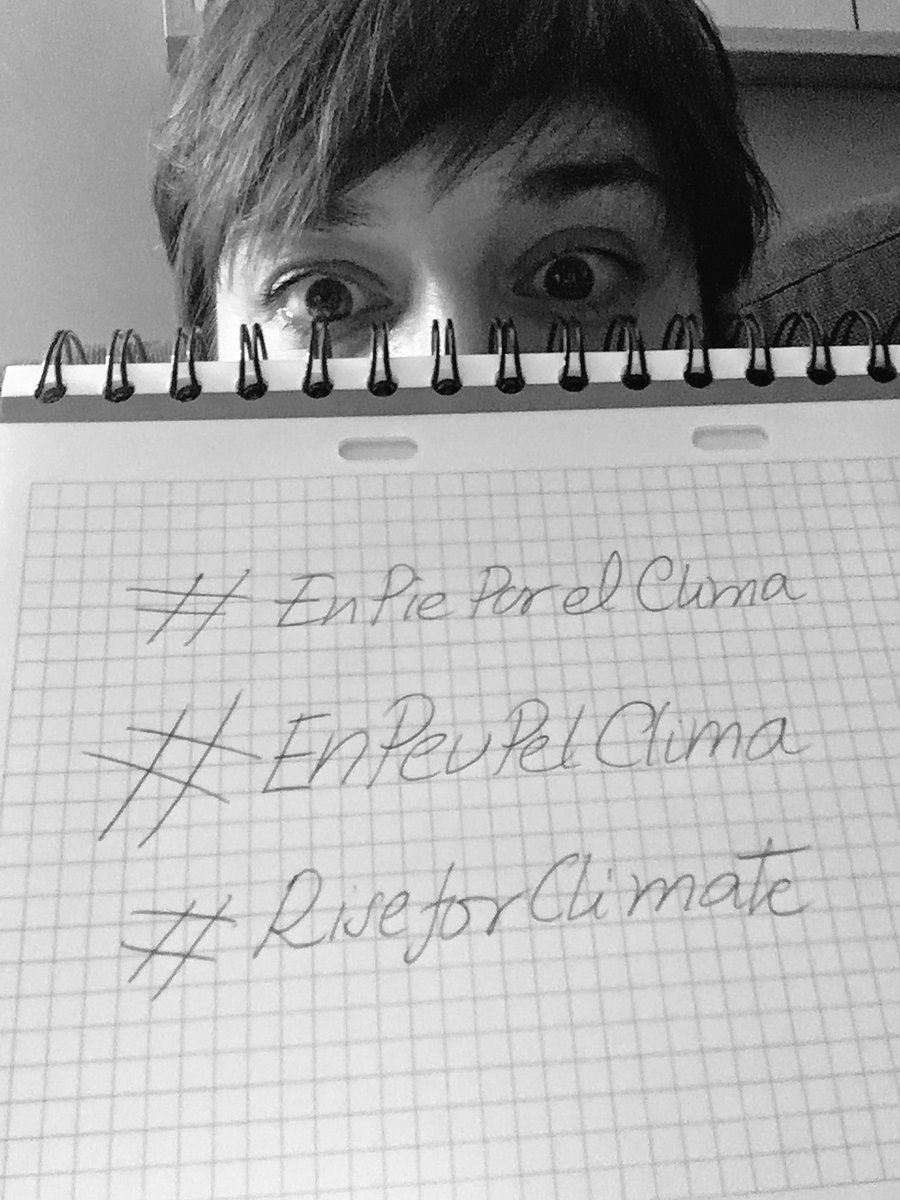 # EnPie Por el Clima
# EnPeu Pel Clima
# RiseforClimate